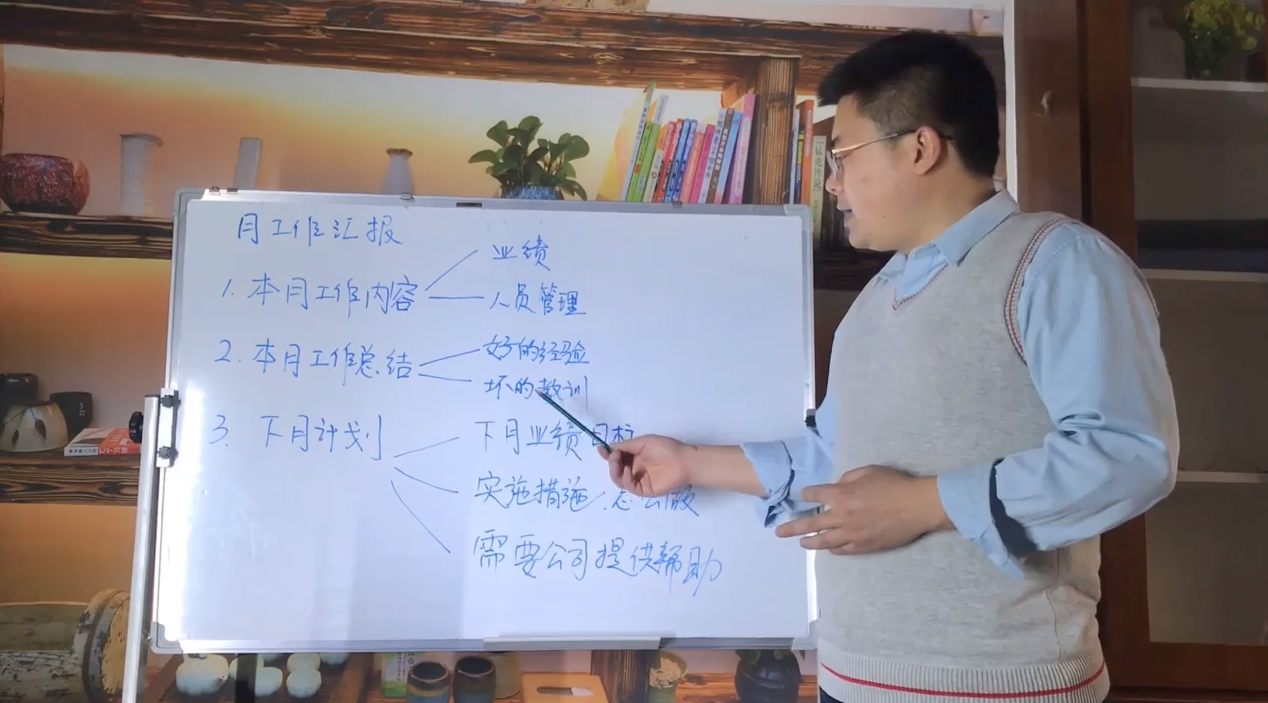 月工作汇报
1. 本月工作内容
业绩
人员管理
2. 本月工作总结
好的经验
坏的教训
3. 下月计划
下月业绩目标
实施措施,怎么做
需要公司提供帮助